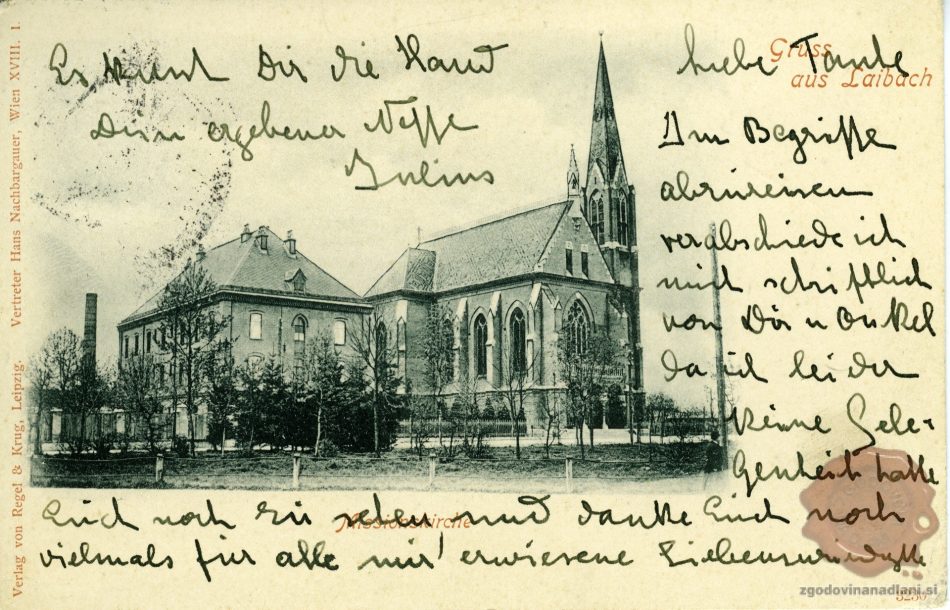 Gruss
aus Laibach
liebe Tante
Im Begriffe
abzureisen
verabschiede ich
mich schriftlich
von Dir u Onkel
da ich leider
keine Gele-
genheit hatte
Euch noch zu sehen und danke Euch noch
vielmals für alle mir erwiesene Liebenswürdigk
Es küsst Dir die Hand
Dein ergebener Neffe
Julius
Missionskirche
Verlag von Regel & Krug, Leipzig. Vertreter Hans Nachbargauer, Wien XVIII. 1.
3230
zgodovinanadlani.si